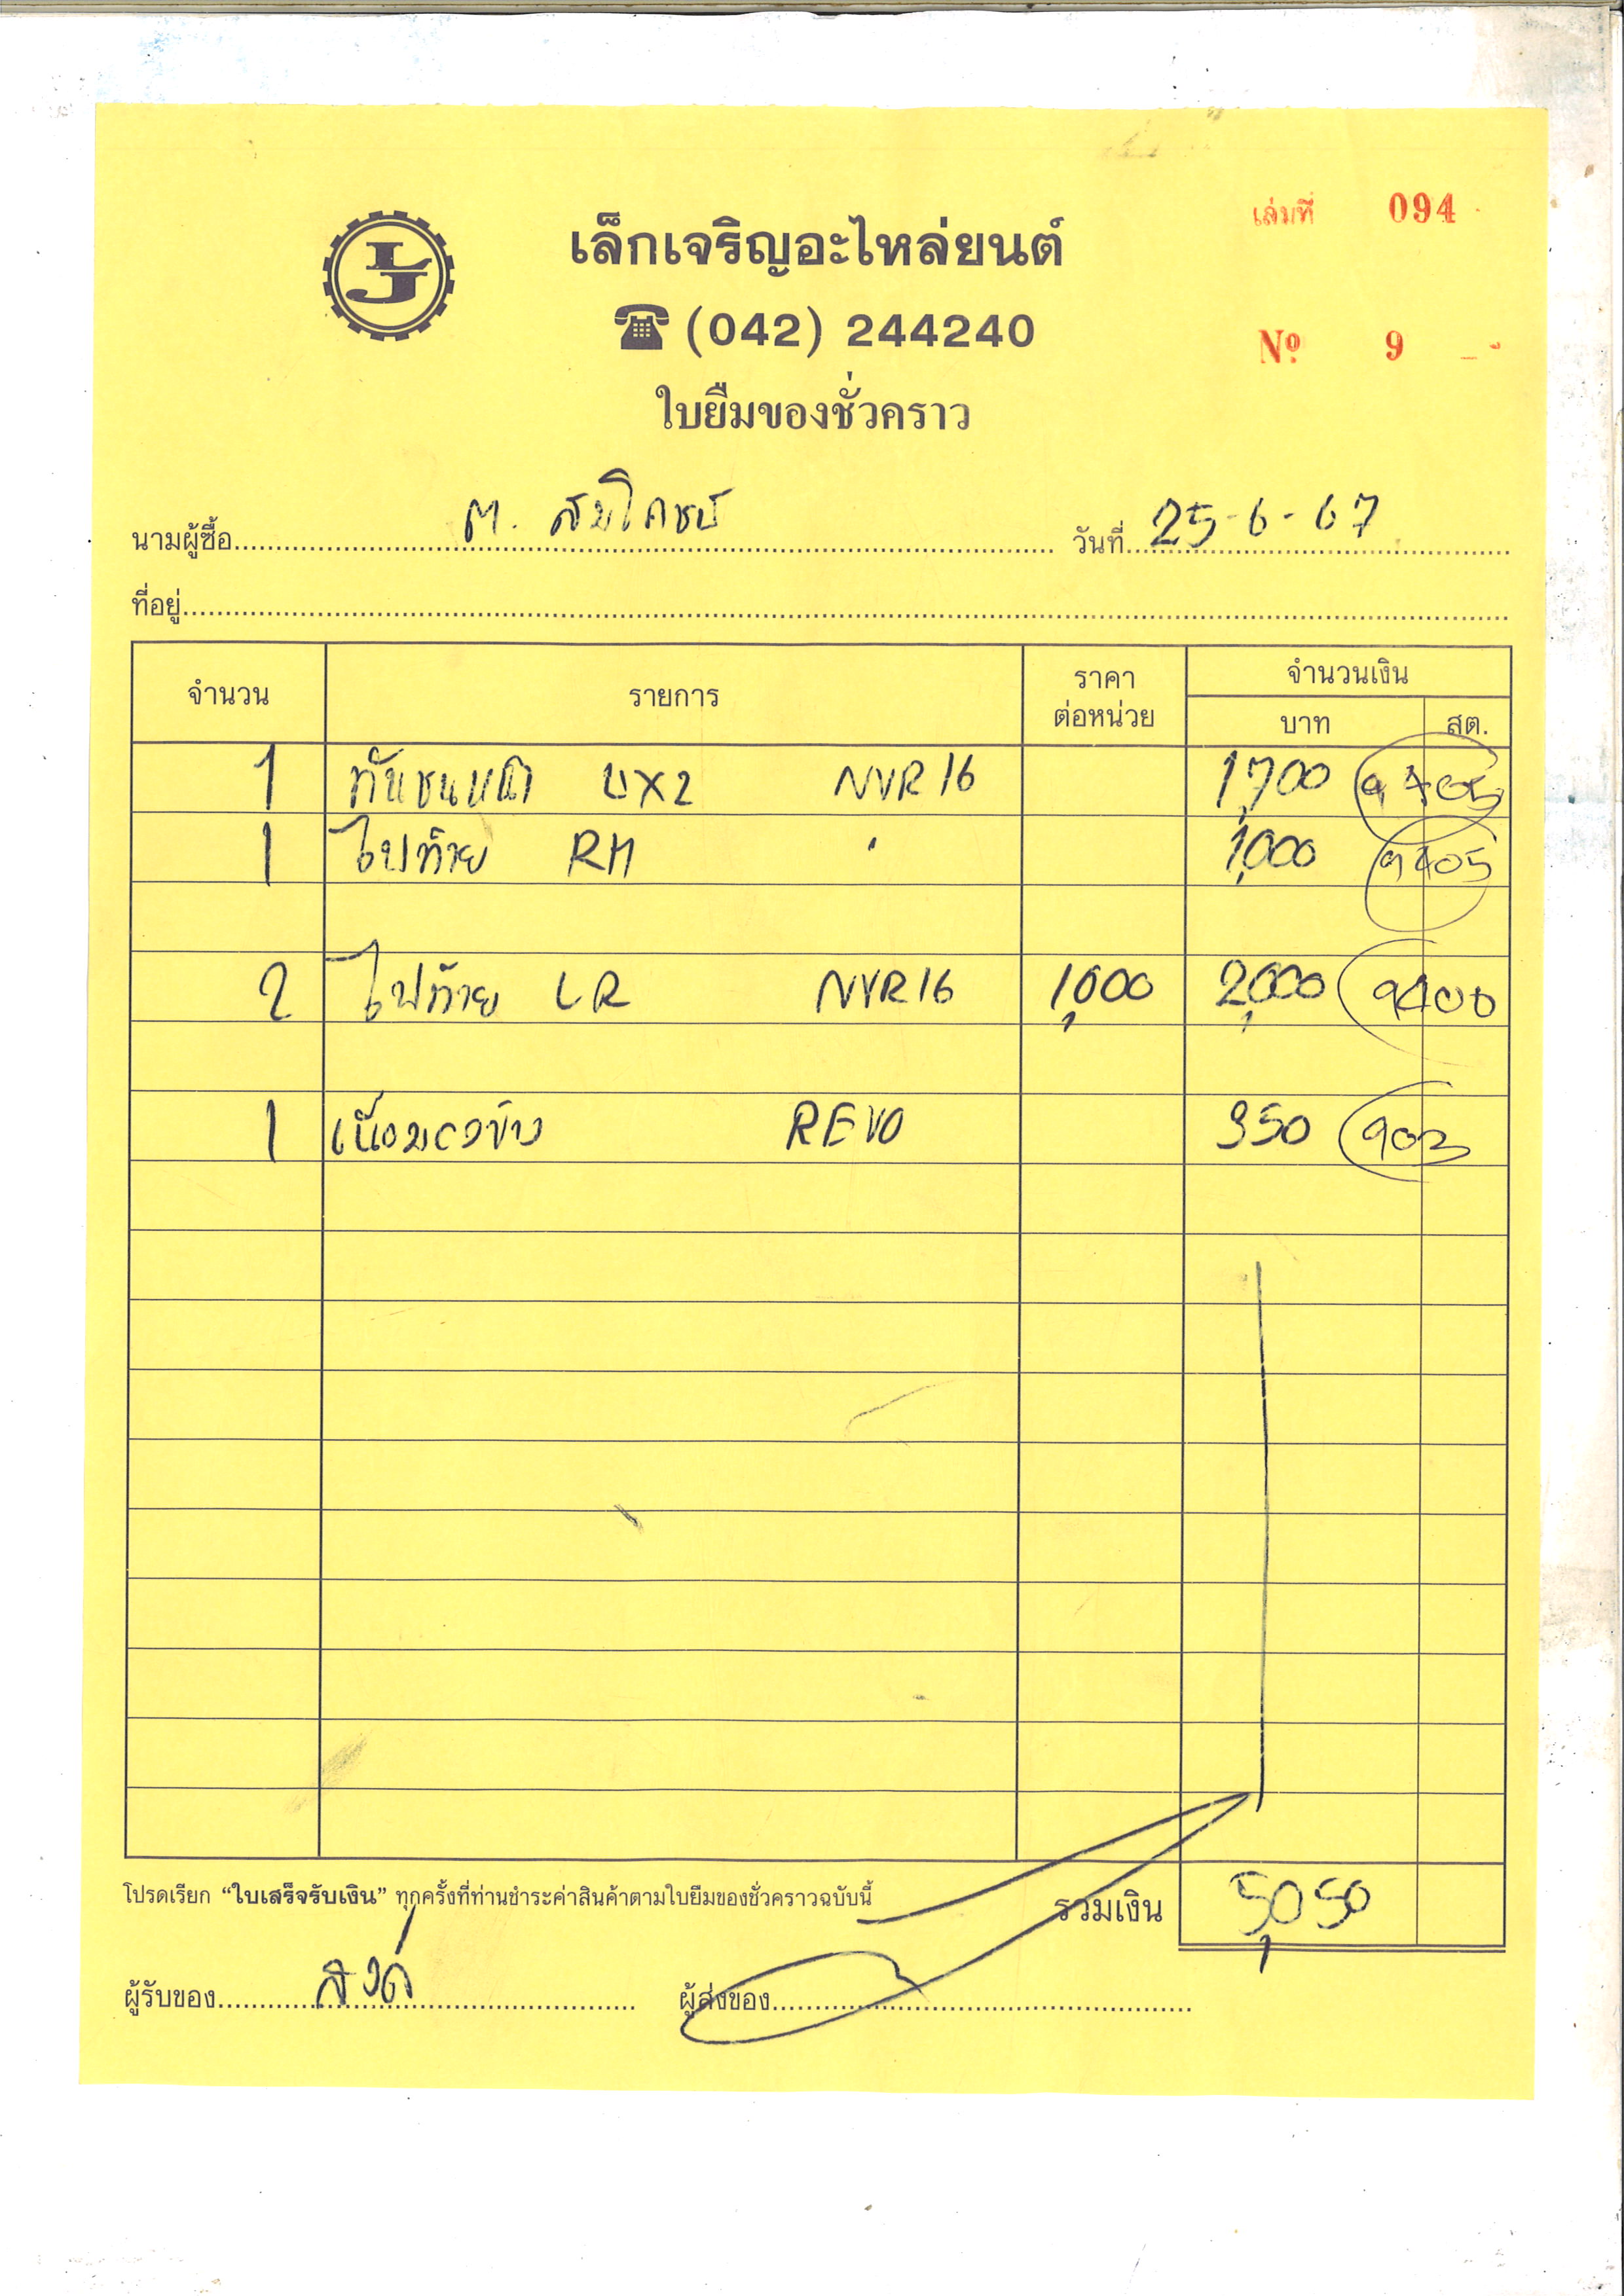 เล่มที่ 094
LJ
เล็กเจริญอะไหล่ยนต์
☎ (042) 244240
Nº 9
ใบยืมของชั่วคราว
นามผู้ซื้อ M. วันที่ 25-6-67
ที่อยู่
จำนวน รายการ ราคาต่อหน่วย จำนวนเงิน
บาท สต.
1 กันชนหน้า 4X2 NVR16 1,700
1 ไฟท้าย RH 1,000 9405
2 ไฟท้าย LR NVR16 1,000 2,000 9400
1 REVO 350 903
โปรดเรียก “ใบเสร็จรับเงิน” ทุกครั้งที่ท่านชำระค่าสินค้าตามใบยืมของชั่วคราวฉบับนี้
รวมเงิน 5,050
ผู้รับของ ผู้ส่งของ